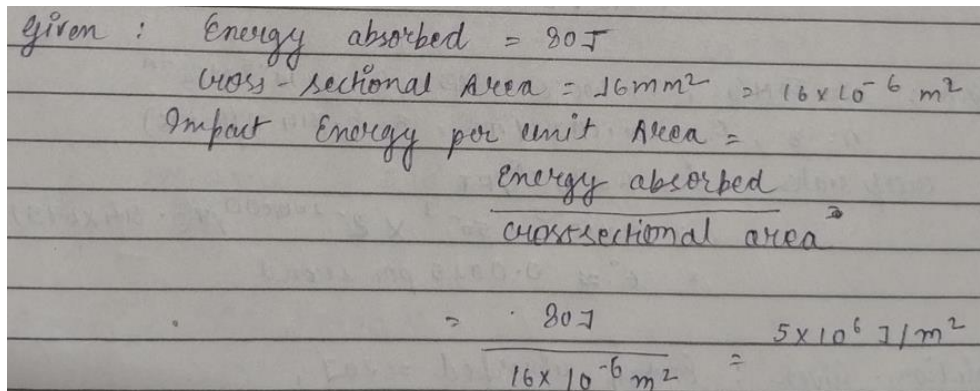 Given : Energy absorbed = 80J
Cross-sectional Area = 16mm² = 16x10⁻⁶ m²
Impact Energy per unit Area =
Energy absorbed
crosssectional area
= 80J
16x10⁻⁶ m² = 5x10⁶ J/m²